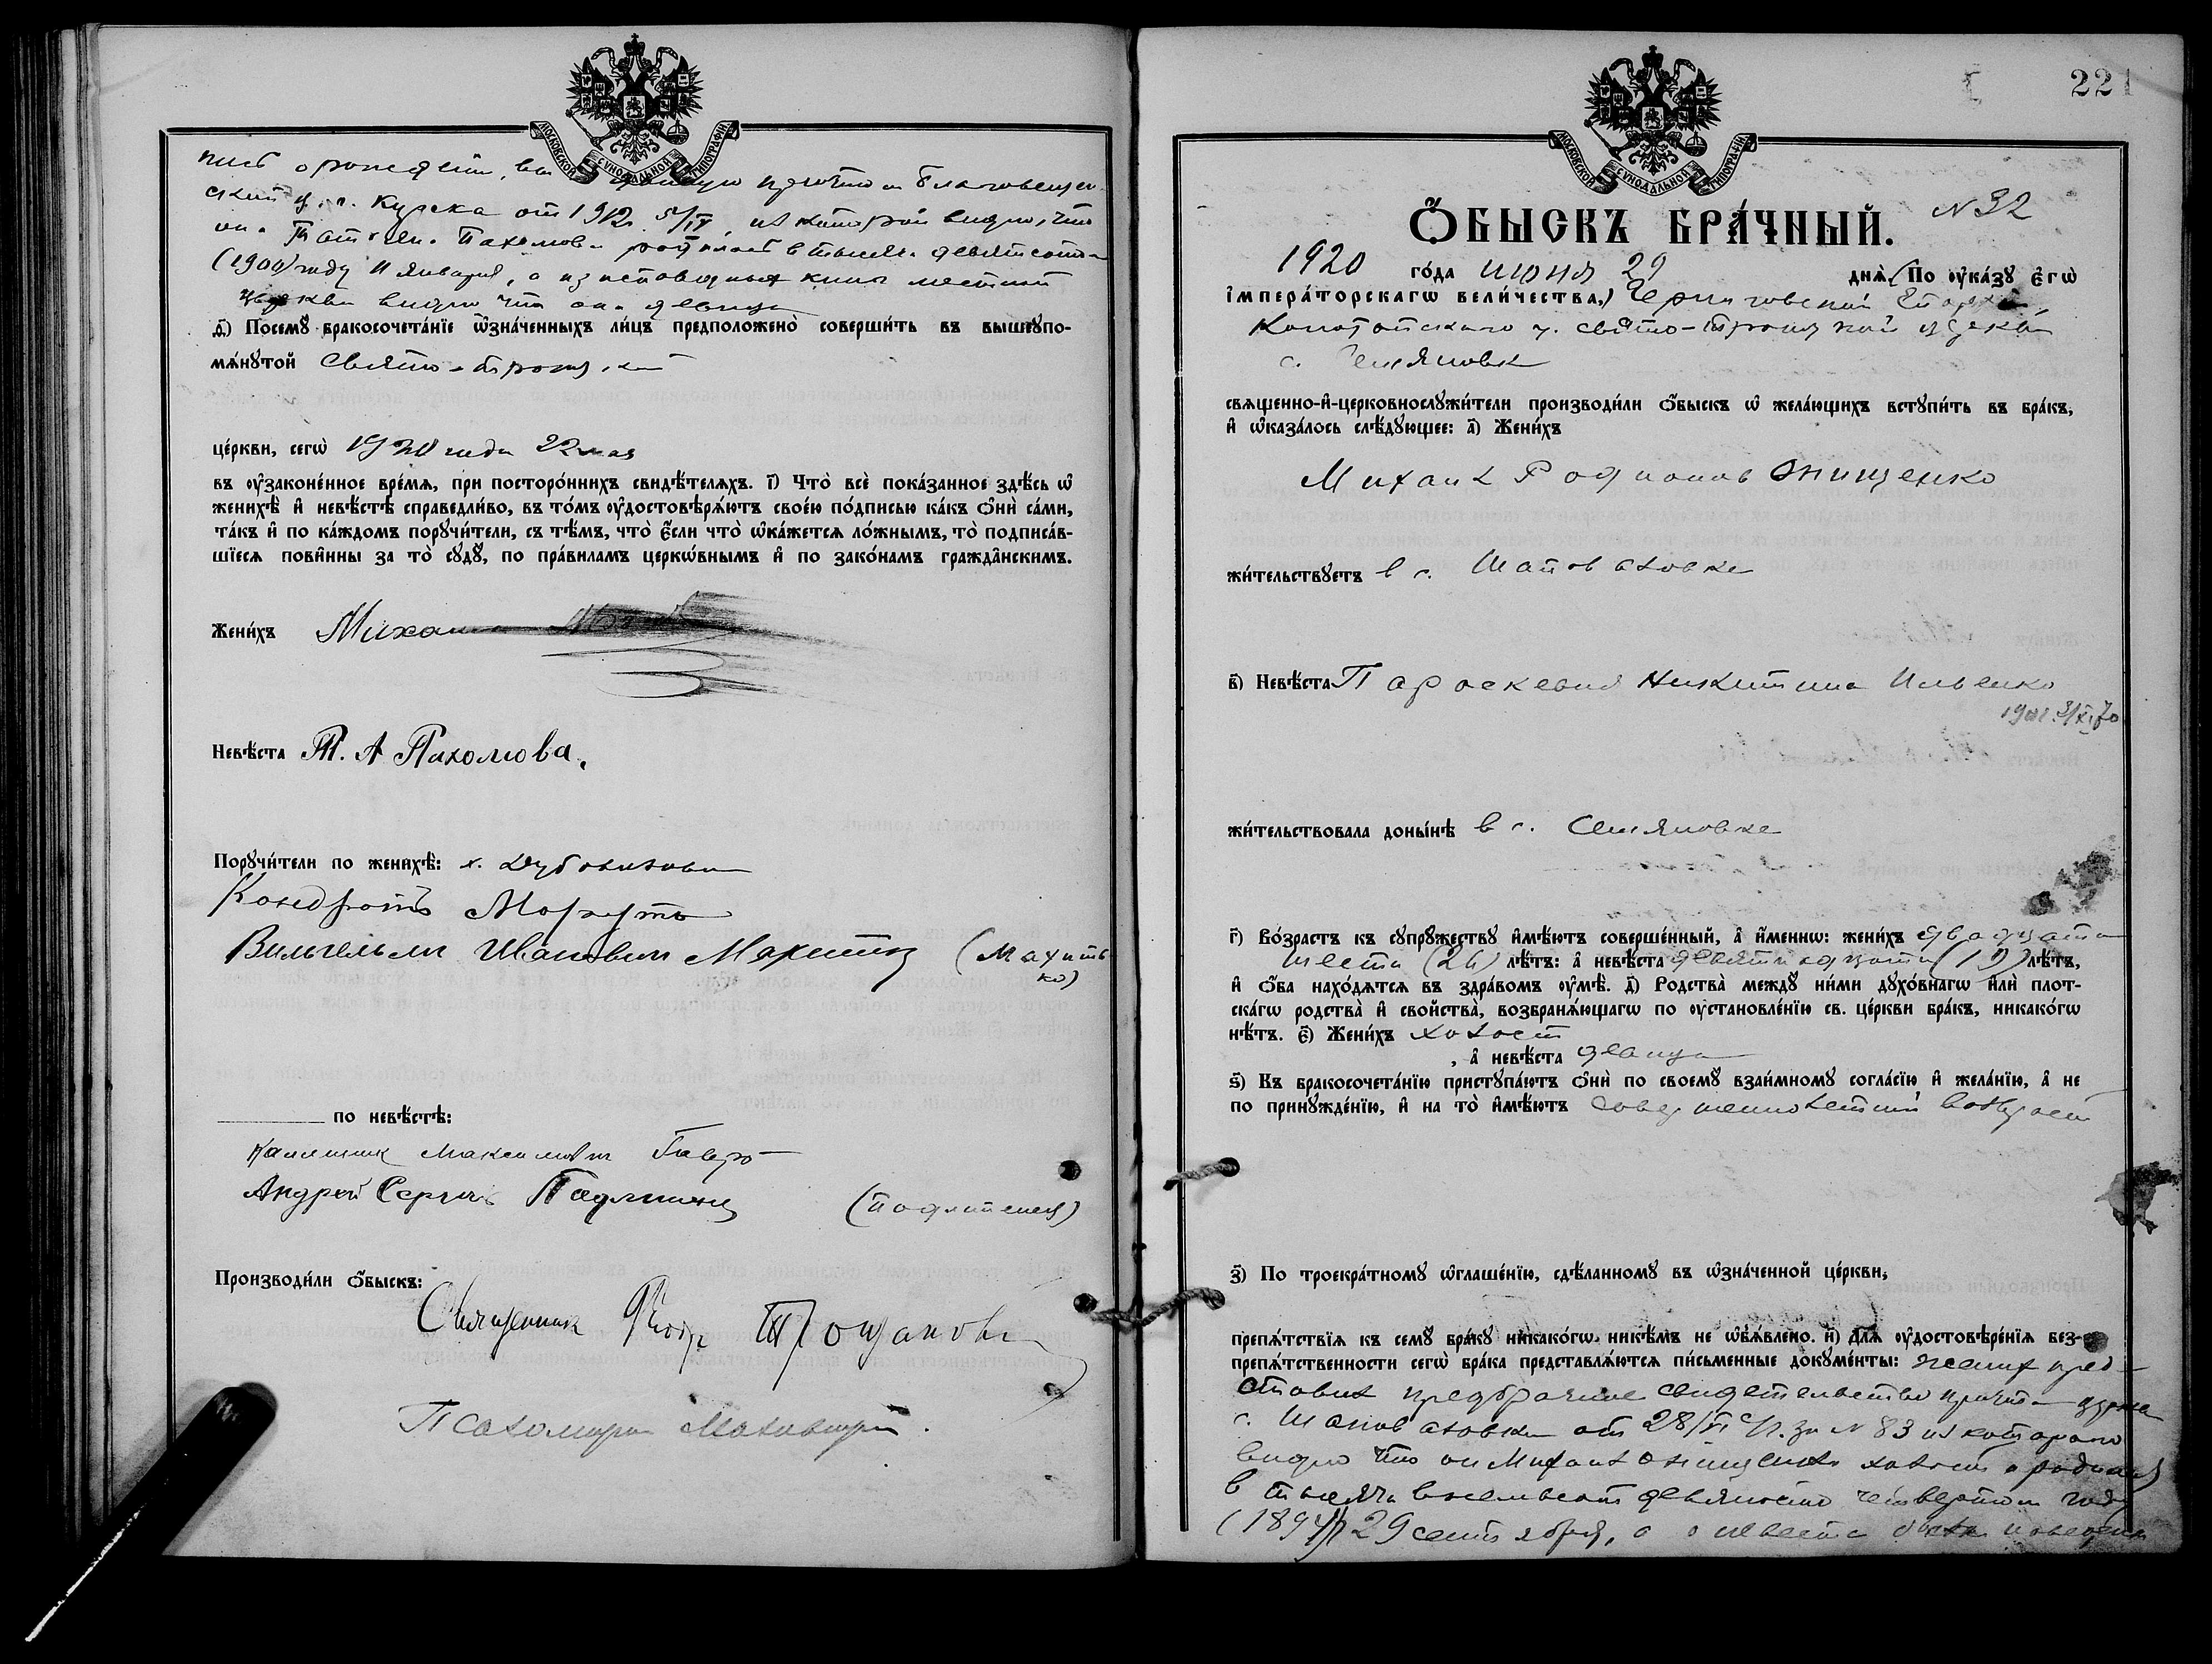 МОСКОВСКОЙ СѴНОДАЛЬНОЙ ТИПОГРАФІИ
пись о рождении, причтом Благовещен
ской ц. г. Курска от 1912 г. 5/IV, из которой видно, что
она Пахомова в тысяча девятсотом
(1900) году 11 января, а из исповедных книг местной
церкви видно что она девица
д҃і) Посемꙋ̀ бракосочета́нїе ѡ҆зна́ченныхъ ли́цъ предположено̀ соверши́ть въ вышеꙋпо-
мѧ́нꙋтой Свято-Троицкой
це́ркви, сегѡ̀ 1920 года 22 мая
въ ᲂу҆зако́нённое вре́мѧ, при посторо́ннихъ свидѣ́телѧхъ. і҃) Что̀ всѐ пока́занное здѣ́сь ѡ҆
женихѣ̀ и҆ невѣ́стѣ справедли́во, въ то́мъ ᲂу҆достовѣрѧ́ютъ своє́ю по́дписью ка́къ ѻ҆нѝ са́ми,
та́къ и҆ по ка́ждомъ порꙋчи́тели, съ тѣ́мъ, что̀ є҆́сли что̀ ѡ҆ка́жетсѧ ло́жнымъ, то̀ подписа́в-
шїесѧ пови́нны за то̀ сꙋдꙋ̀, по пра́виламъ церкѡ́внымъ и҆ по зако́намъ гражда́нскимъ.
Жени́хъ Михаил
Невѣ́ста Т. А Пахомова.
Порꙋчи́тели по женихѣ̀: х.
Кондрат
Вильгельм Иванович (Махитъ
ко)
по невѣ́стѣ:
Каленик Максимович
Андрей Сергиев
Производи́ли ѻ҆́быскъ:
Священник
Псаломщик
221
МОСКОВСКОЙ СѴНОДАЛЬНОЙ ТИПОГРАФІИ
N 32
Ѻ҆́БЫСКЪ БРА́ЧНЫЙ.
1920 го́да июня 29 днѧ̀ (По ᲂу҆ка́зꙋ є҆гѡ̀
і҆мпера́торскагѡ вели́чества,) Черниговской Епархии,
Конотопского у. свято-троицкой церкви
с. Семяновки
свѧщенно-и҆-церковнослꙋжи́тели производи́ли ѻ҆́быскъ ѡ҆ жела́ющихъ встꙋпи́ть въ бра́къ,
и҆ ѡ҆каза́лось слѣ́дꙋющее: а҃) Жени́хъ
Михаил Родионов Онищенко
жи́тельствꙋетъ в с. Шаповаловке
в҃) Невѣ́ста Параскевия Никитина Ильенко
жи́тельствовала доны́нѣ в с. Семяновке
г҃) Во́зрастъ къ сꙋпрꙋ́жествꙋ и҆мѣ́ютъ соверше́нный, а҆ и҆́меннѡ: жени́хъ двадцати
шести (26) лѣ́тъ: а҆ невѣ́ста девятнадцати (19) лѣ́тъ,
и҆ ѻ҆́ба нахо́дѧтсѧ въ здра́вомъ ᲂу҆мѣ̀. д҃) Родства̀ междꙋ̀ ни́ми дꙋхо́внагѡ и҆лѝ плот-
ска́гѡ родства̀ и҆ сво́йства, возбранѧ́ющагѡ по ᲂу҆становле́нїю св. це́ркви бра́къ, никако́гѡ
нѣ́тъ. є҃) Жени́хъ холост
, а҆ невѣ́ста девица
ѕ҃) Къ бракосочета́нїю пристꙋпа́ютъ ѻ҆нѝ по своемꙋ̀ взаи́мномꙋ согла́сїю и҆ жела́нїю, а҆ не
по принꙋжде́нїю, и҆ на то̀ и҆мѣ́ютъ совершеннолетний возраст
з҃) По троекра́тномꙋ ѡ҆глаше́нїю, сдѣ́ланномꙋ въ ѡ҆зна́ченной це́ркви,
препѧ́тствїѧ къ семꙋ̀ бра́кꙋ никако́гѡ никѣ́мъ не ѡ҆б̾ѧ́влено. и҃) Длѧ̀ ᲂу҆достовѣре́нїѧ без-
препѧ́тственности сегѡ̀ бра́ка представлѧ́ютсѧ пи́сьменные докꙋме́нты: жених пред-
ставил предбрачное свидетельство причта церкви
с. Шаповаловки от 28/VI с/г. за N 83 из которого
видно что он Михаил Онищенко холост и родился
в тысяча восемьсот девяносто четвертом году
(1894) 29 сентября, а о невесте